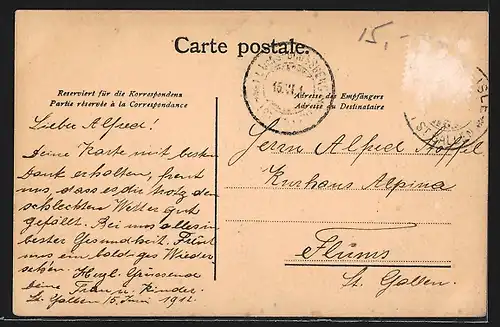 15,-
Carte postale.
Reserviert für die Korrespondenz
Partie réservée à la Correspondance
Adresse des Empfängers
Adresse du Destinataire
15.VI.1
Lieber Alfred!
Deine Karte mit besten
Dank erhalten, freut
uns, dass es dir trotz dem
schlechten Wetter gut
gefällt. Bei uns alles in
bester Gesundheit. Freut
uns ein baldiges Wieder
sehen. Herzl. Grüssend
Deine Frau u. Kinder.
St. Gallen 15. Juni 1912.
Herrn Alfred Stoffel
Kurhaus Alpina
Flums
St. Gallen.